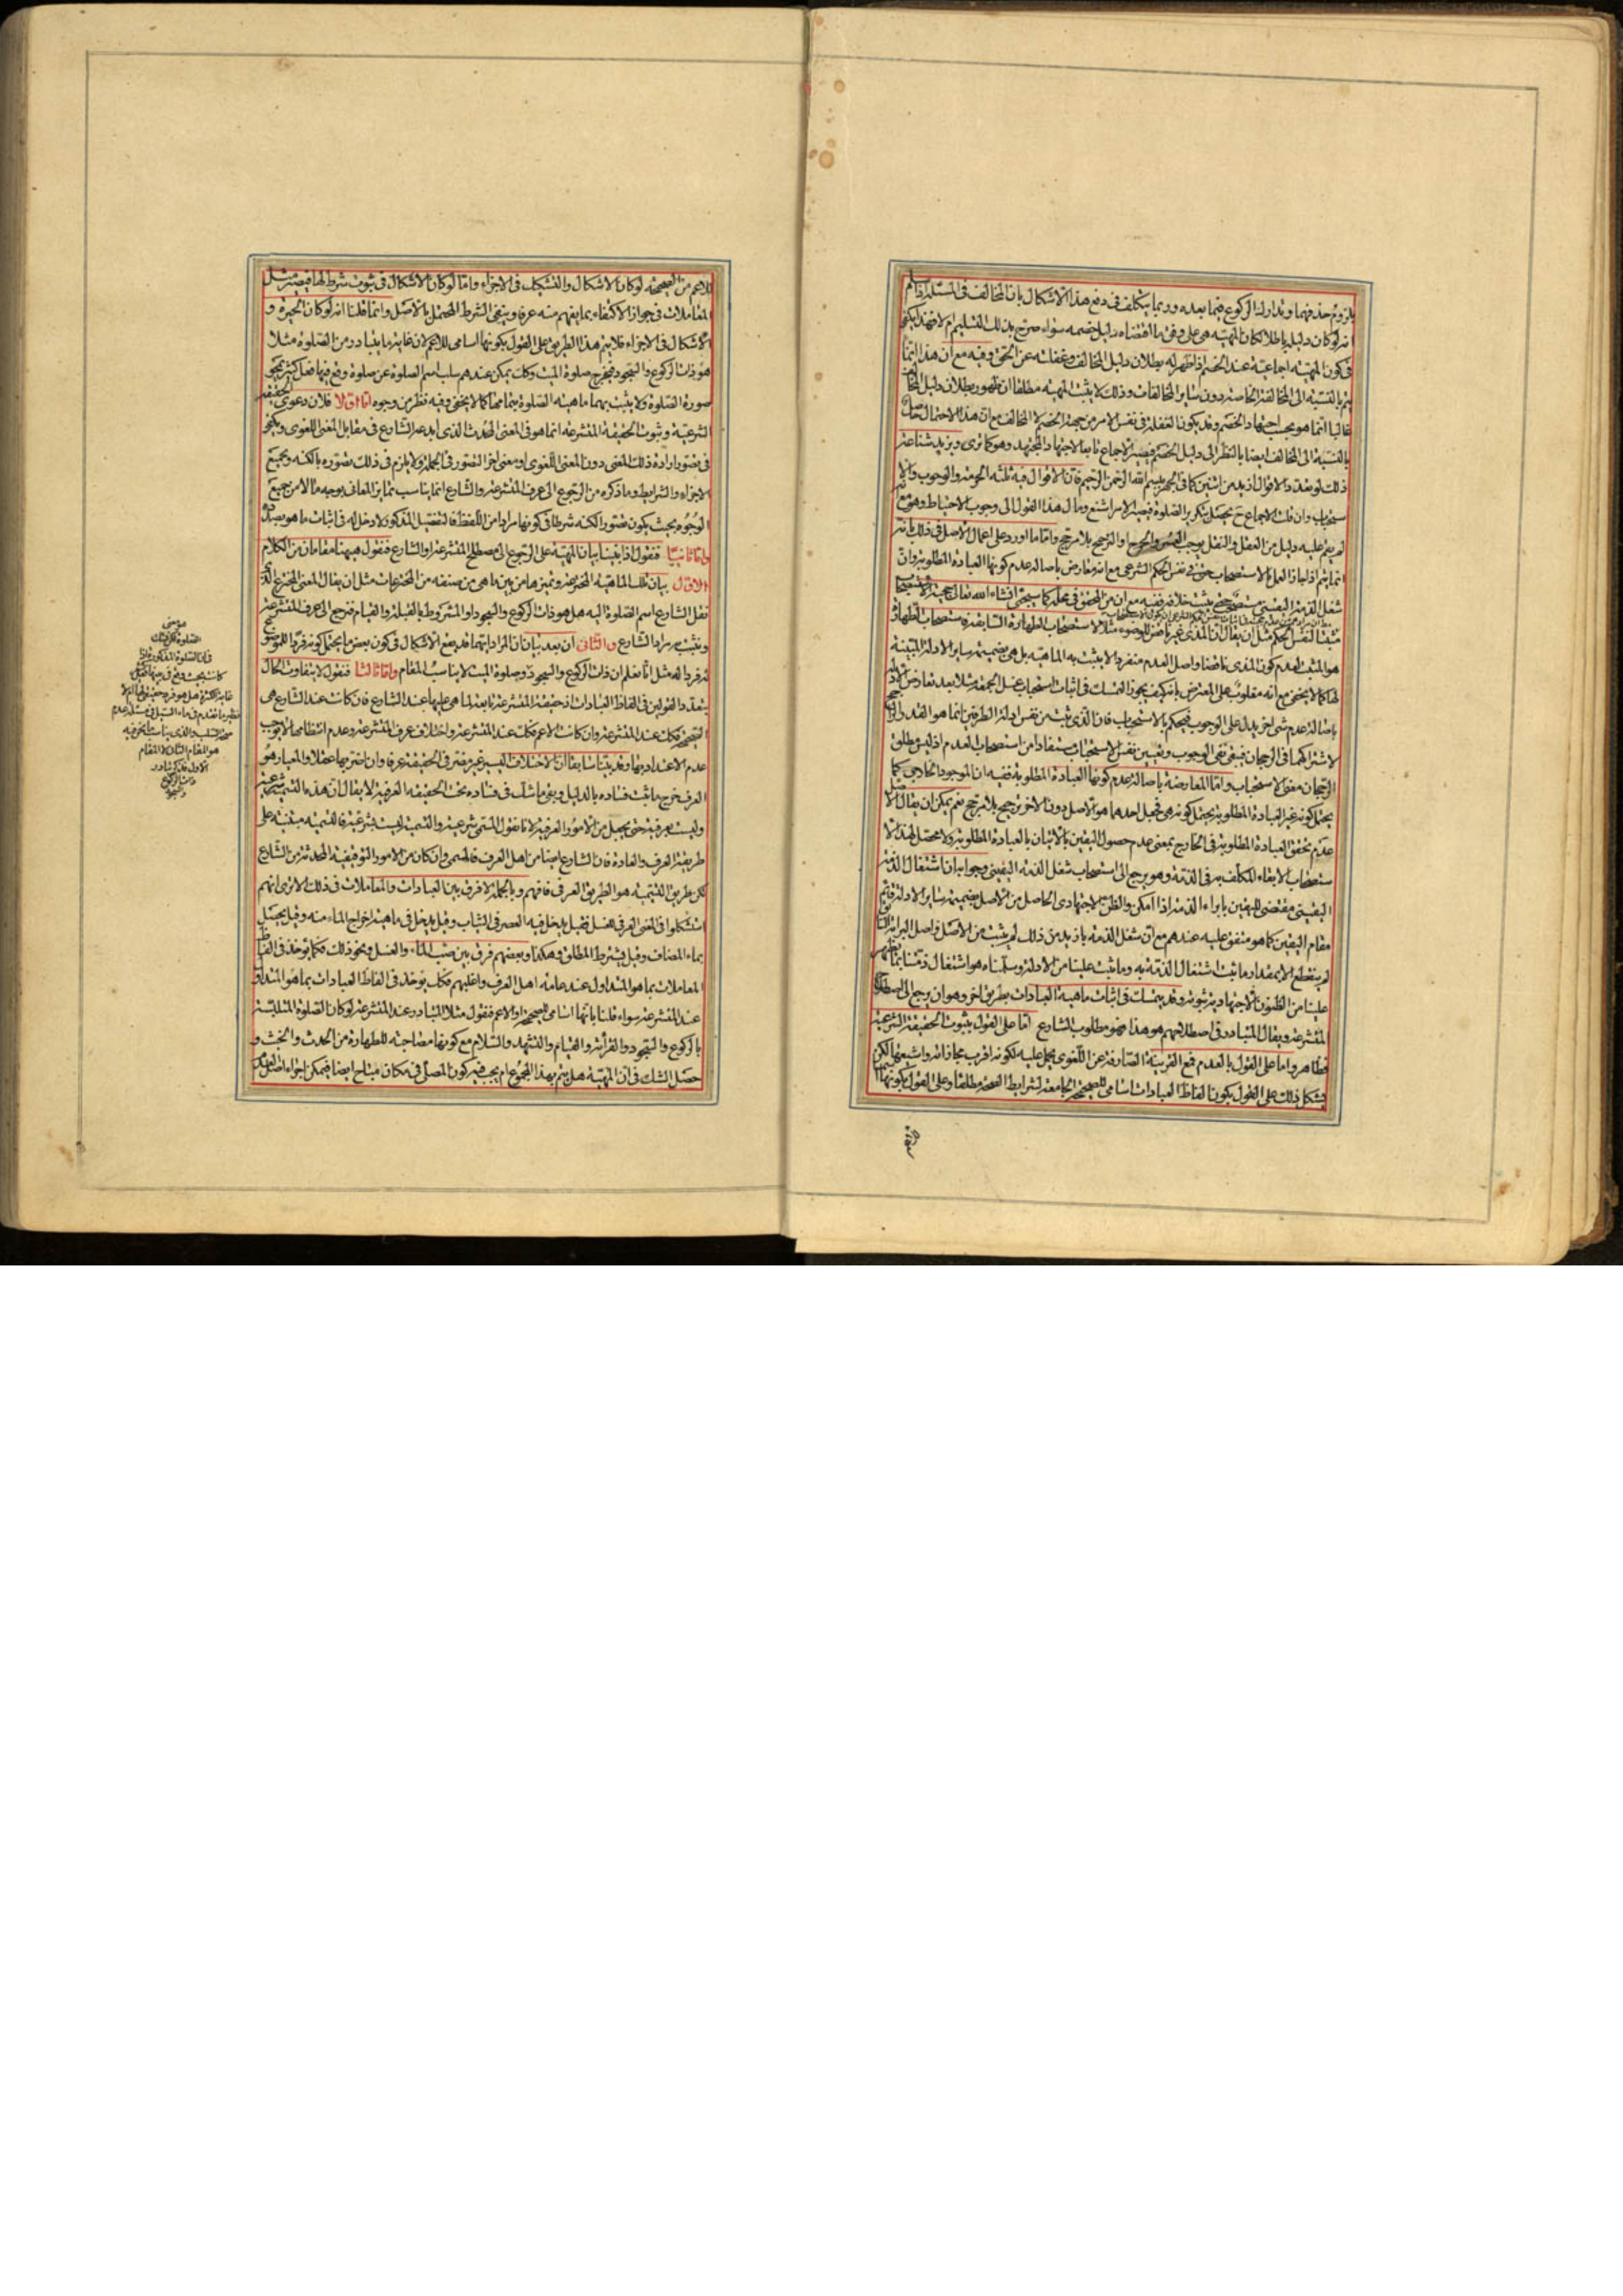 يلزوم حذفهما وتدارك الركوع فيما بعده وربما يتكلف في دفع هذا الاشكال بان المخالف في المسئلة اذا سلم
انه لو كان دليله باطلا لكان المهية هي على وفق ما اقتضاه دليل خصمه سواء صرح بذلك التسليم ام لا فهذا يكفي
في كون المهية اجماعية عند الخصم اذا ظهر له بطلان دليل المخالف وغفلته عن الحق وفيه مع ان هذا انما
يتم بالنسبة الى المخالفة الخاصة دون ساير المخالفات وذلك لا يثبت المهية مطلقا ان ظهور بطلان دليل المخالف
غالبا انما هو بحسب اجتهاد الخصم وقد يكون الغفلة في نفس الامر من جهة الخصم لا المخالف مع ان هذا الاحتمال
بالنسبة الى المخالف ايضا بالنظر الى دليل الخصم فيصير الاجماع تابعا لاجتهاد المجتهد وهو كما ترى ويزيد شناعة
ذلك لو تعدد الاقوال ازيد من اثنين كما في الجهر ببسم الله الرحمن الرحيم فان الاقوال فيه ثلثة الحرمة والوجوب والا
ستحباب وان قلت الاجماع ح يحصل بتكرير الصلوة فيصير الامر اشنع ومآل هذا القول الى وجوب الاحتياط وهو مع
لم يقم عليه دليل من العقل والنقل يوجب العسر والحرج او الترجيح بلا مرجح واما ما اورد على اعمال الاصل في ذلك بانه
انما يتم اذا جاز العمل بالاستصحاب حتى في نفس الحكم الشرعي مع انه معارض باصالة عدم كونها العبادة المطلوبة وان
شغل الذمة اليقيني مستصحب حتى يثبت خلافه ففيه مع ان من المحقق في محله كما سيجئ انشاء الله تعالى حجية الاستصحاب
مثبتا لنفس الحكم مثل ان يقال ان المذي غير ناقض للوضوء مثلا لاستصحاب الطهارة السابقة فاستصحاب الطهارة
هو المثبت لعدم كون المذي ناقضا واصل العدم منفردا لا يثبت به الماهية بل هي بضميمة ساير الادلة المبينة
لها كما لا يخفى مع انه مقلوب على المعترض بانه كيف يجوز التمسك في اثبات استحباب غسل الجمعة مثلا بعد تعارض الادلة
باصالة عدم شئ اخر يدل على الوجوب فيحكم بالاستحباب فان الذي ثبت من نفس ادلة الطرفين انما هو القدر الراجح
لاشتراكهما في الرجحان فيبقى نفي الوجوب وتعيين نفس الاستحباب مستفادا من استصحاب العدم اذ ليس مطلق
الرجحان معنى الاستحباب واما المعارضة باصالة عدم كونها العبادة المطلوبة ففيه ان الموجود الخارجي كما
يحتمل كونه غير العبادة المطلوبة يحتمل كونه هي فجعل احدهما هو الاصل دون الاخر ترجيح بلا مرجح نعم يمكن ان يقال الاصل
عدم تحقق العبادة المطلوبة في الخارج بمعنى عدم حصول اليقين بالاتيان بالعبادة المطلوبة ولا محصل لهذا الا
ستصحاب الا بقاء المكلف به في الذمة وهو يرجع الى استصحاب شغل الذمة اليقيني وجوابه ان اشتغال الذمة
اليقيني مقتضى لليقين بابراء الذمة اذا امكن والظن الاجتهادي الحاصل من الاصل بضميمة ساير الادلة قائم
مقام اليقين كما هو متفق عليه عندهم مع ان شغل الذمة بازيد من ذلك لم يثبت من الاصل واصل البرائة
لم ينقطع الا بمقدار ما ثبت اشتغال الذمة به وما ثبت علينا من الادلة وسلمناه هو اشتغال ذمتنا بما يظهر
علينا من الظنون الاجتهادية ثبوته وقد يتمسك في اثبات ماهية العبادات بطريق اخر وهو ان يرجع الى اصطلاح
المتشرعة ويقال المتبادر في اصطلاحهم هو هذا فهو مطلوب الشارع اما على القول بثبوت الحقيقة الشرعية
فظاهر واما على القول بالعدم فمع القرينة الصارفة عن اللغوي يحمل عليه لكونه اقرب مجازاته واشيعها لكن
يشكل ذلك على القول بكون الفاظ العبادات اسامي للصحيحة الجامعة لشرايط الصحة مطلقا وعلى القول بكونها
للاعم من الصحيحة لو كان الاشكال والتشكيك في الاجزاء واما لو كان الاشكال في ثبوت شرط لها فيصير مثل
المعاملات في جواز الاكتفاء بما يفهم منه عرفا وينفى الشرط المحتمل بالاصل وانما قلنا انه لو كان الحيرة و
الاشكال في الاجزاء فلا يتم هذا الطريق على القول بكونها اسامي للاعم لان غاية ما يتبادر من الصلوة مثلا
هو ذات الركوع والسجود فيخرج صلوة الميت وكك يمكن عندهم سلب اسم الصلوة عن صلوة وقع فيها فعل كثير يمحو
صورة الصلوة ولا يثبت بهما ماهية الصلوة بتمامها كما لا يخفى وفيه نظر من وجوه اما اولا فلان دعوى الحقيقة
الشرعية وثبوت الحقيقة المتشرعة انما هو في المعنى المحدث الذي ابدعه الشارع في مقابل المعنى اللغوي ويكفي
في تصور ارادة ذلك المعنى دون المعنى اللغوي او معنى اخر التصور في الجملة ولا يلزم في ذلك تصوره بالكنه وبجميع
الاجزاء والشرايط وما ذكره من الرجوع الى عرف المتشرعة والشارع انما يناسب تمايز المعاني بوجه ما لا من جميع
الوجوه بحيث يكون تصور الكنه شرطا في كونها مرادا من اللفظ فالتفصيل المذكور لا دخل له في اثبات ما هو بصدده
واما ثانيا فنقول اذا بنينا بيان المهية على الرجوع الى مصطلح المتشرعة او الشارع فنقول هيهنا مقامان من الكلام
الاول بيان تلك الماهية المخترعة وتميزها من بين ما هي من صنفه من المخترعات مثل ان يقال المعنى المخترع الذي
نقل الشارع اسم الصلوة اليه هل هو ذات الركوع والسجود او المشروط بالقبلة والقيام فنرجع الى عرف المتشرعة
ونثبت به مراد الشارع والثاني ان بعد بيان ان المراد ايهما قد يقع الاشكال في كون بعض ما يحتمل كونه فردا للموضوع
له فردا له مثل انا نعلم ان ذات الركوع والسجود وصلوة الميت لا يناسب المقام واما ثالثا فنقول لا يتفاوت الحال
بتعدد القولين في الفاظ العبادات اذ حقيقة المتشرعة تابعة لما هي عليها عند الشارع فان كانت عند الشارع هي
الصحيحة فكك عند المتشرعة وان كانت الاعم فكك عند المتشرعة واختلاف عرف المتشرعة وعدم انتظامها لا يوجب
عدم الاعتداد بها وقد بينا سابقا ان الاختلاف اليسير غير مضر في الحقيقة عرفا وان اضر بها عقلا والمعيار هو
العرف خرج ما ثبت فساده بالدليل وبقي ما شك في فساده تحت الحقيقة العرفية لا يقال ان هذه التسمية شرعية
وليست بعرفية حتى يجعل من الامور العرفية لانا نقول المسمى شرعية والتسمية ليست بشرعية فالتسمية مبتنية على
طريقة العرف والعادة فان الشارع ايضا من اهل العرف فالمسمى وان كان من الامور التوقيفية المحدثة من الشارع
لكن طريق التسمية هو الطريق العرفي فافهم وبالجملة لا فرق بين العبادات والمعاملات في ذلك الا ترى انهم
استشكلوا في المعنى العرفي للغسل فقيل يدخل فيه العصر في الثياب وقيل يدخل في ماهيته اخراج الماء منه وقيل يحصل
بماء المضاف وقيل يشترط المطلق وهكذا وبعضهم فرق بين صب الماء والغسل ونحو ذلك فكما يؤخذ في الفاظ
المعاملات بما هو المتداول عند عامة اهل العرف واغلبهم فكك يؤخذ في الفاظ العبادات بما هو المتداول
عند المتشرعة سواء قلنا بانها اسامي للصحيحة او الاعم فنقول مثلا المتبادر عند المتشرعة لو كان الصلوة المتلبسة
بالركوع والسجود والقرائة والقيام والتشهد والسلام مع كونها مصاحبة للطهارة من الحدث والخبث و
حصل الشك في ان المهية هل يتم بهذا المجموع ام يجب فيه كون المصلي في مكان مباح ايضا فيمكن اجراء اصل العدم